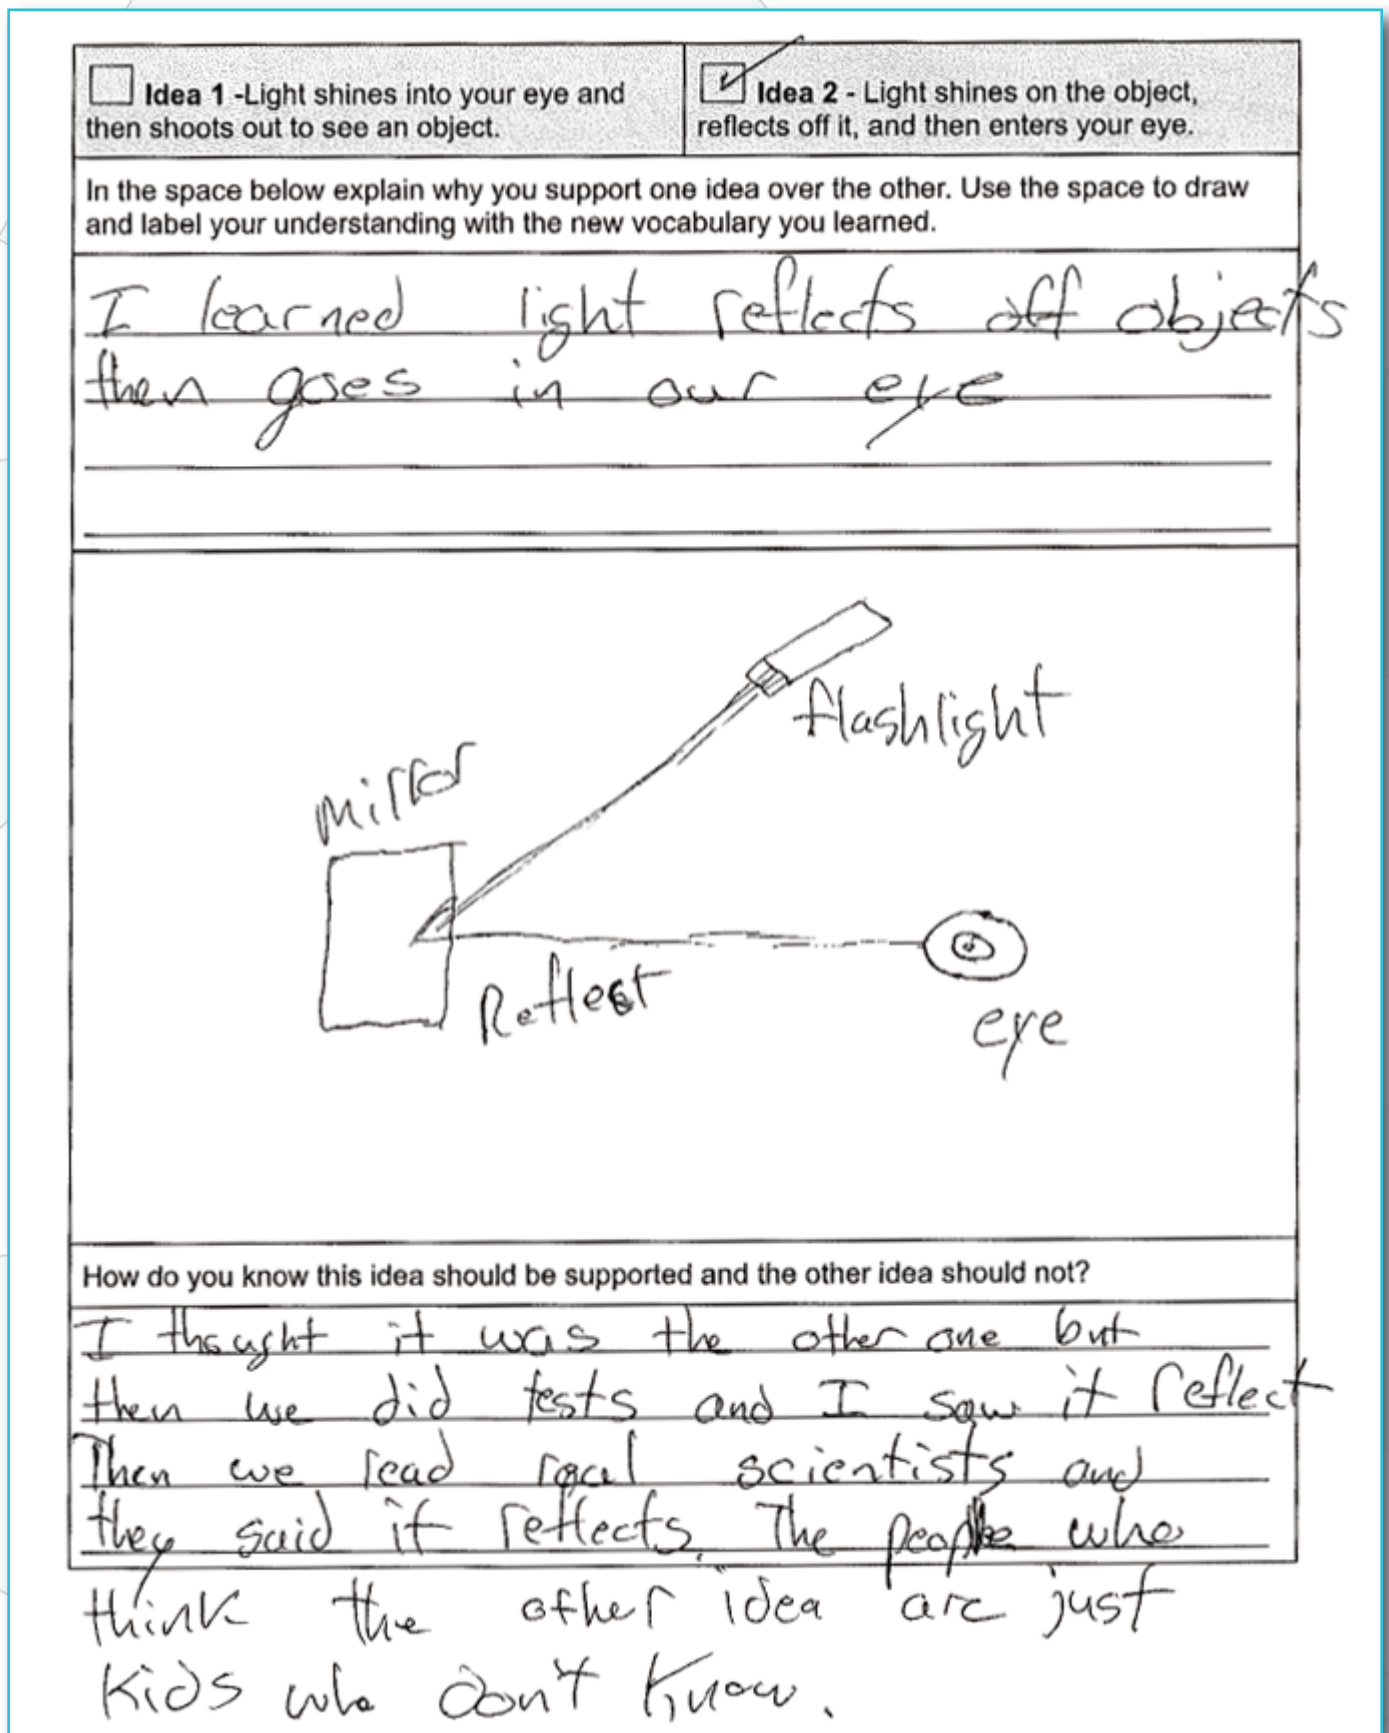 Idea 1 -Light shines into your eye and
then shoots out to see an object.
Idea 2 - Light shines on the object,
reflects off it, and then enters your eye.
In the space below explain why you support one idea over the other. Use the space to draw
and label your understanding with the new vocabulary you learned.
I learned light reflects off objects
then goes in our eye
flashlight
mirror
Reflect
eye
How do you know this idea should be supported and the other idea should not?
I thought it was the other one but
then we did tests and I saw it reflect
Then we read real scientists and
they said it reflects. The people who
think the other idea are just
kids who don't know.